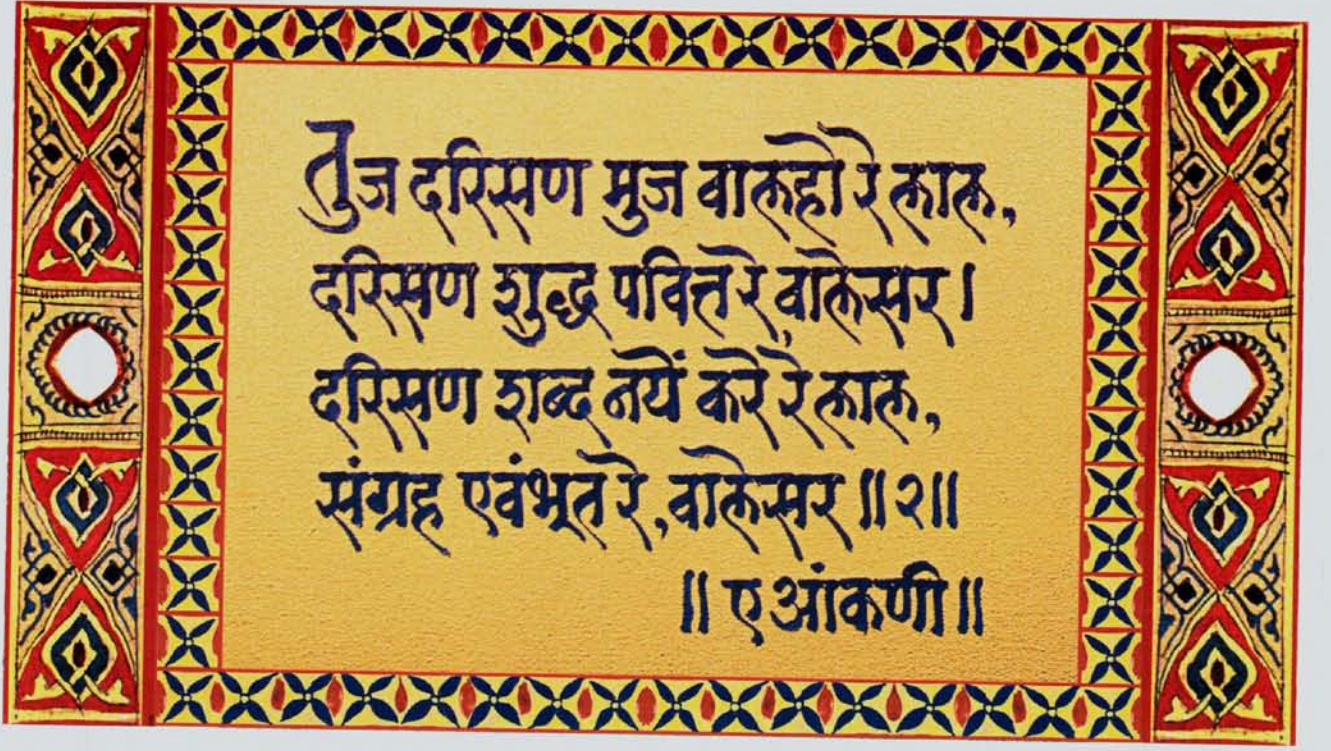 तुज दरिसण मुज वाल्हो रे लाल,
दरिसण शुद्ध पवित्त रे, वालेसर।
दरिसण शब्द नयें करे रे लाल,
संग्रह एवंभूत रे, वालेसर ॥२॥
॥ ए आंकणी ॥